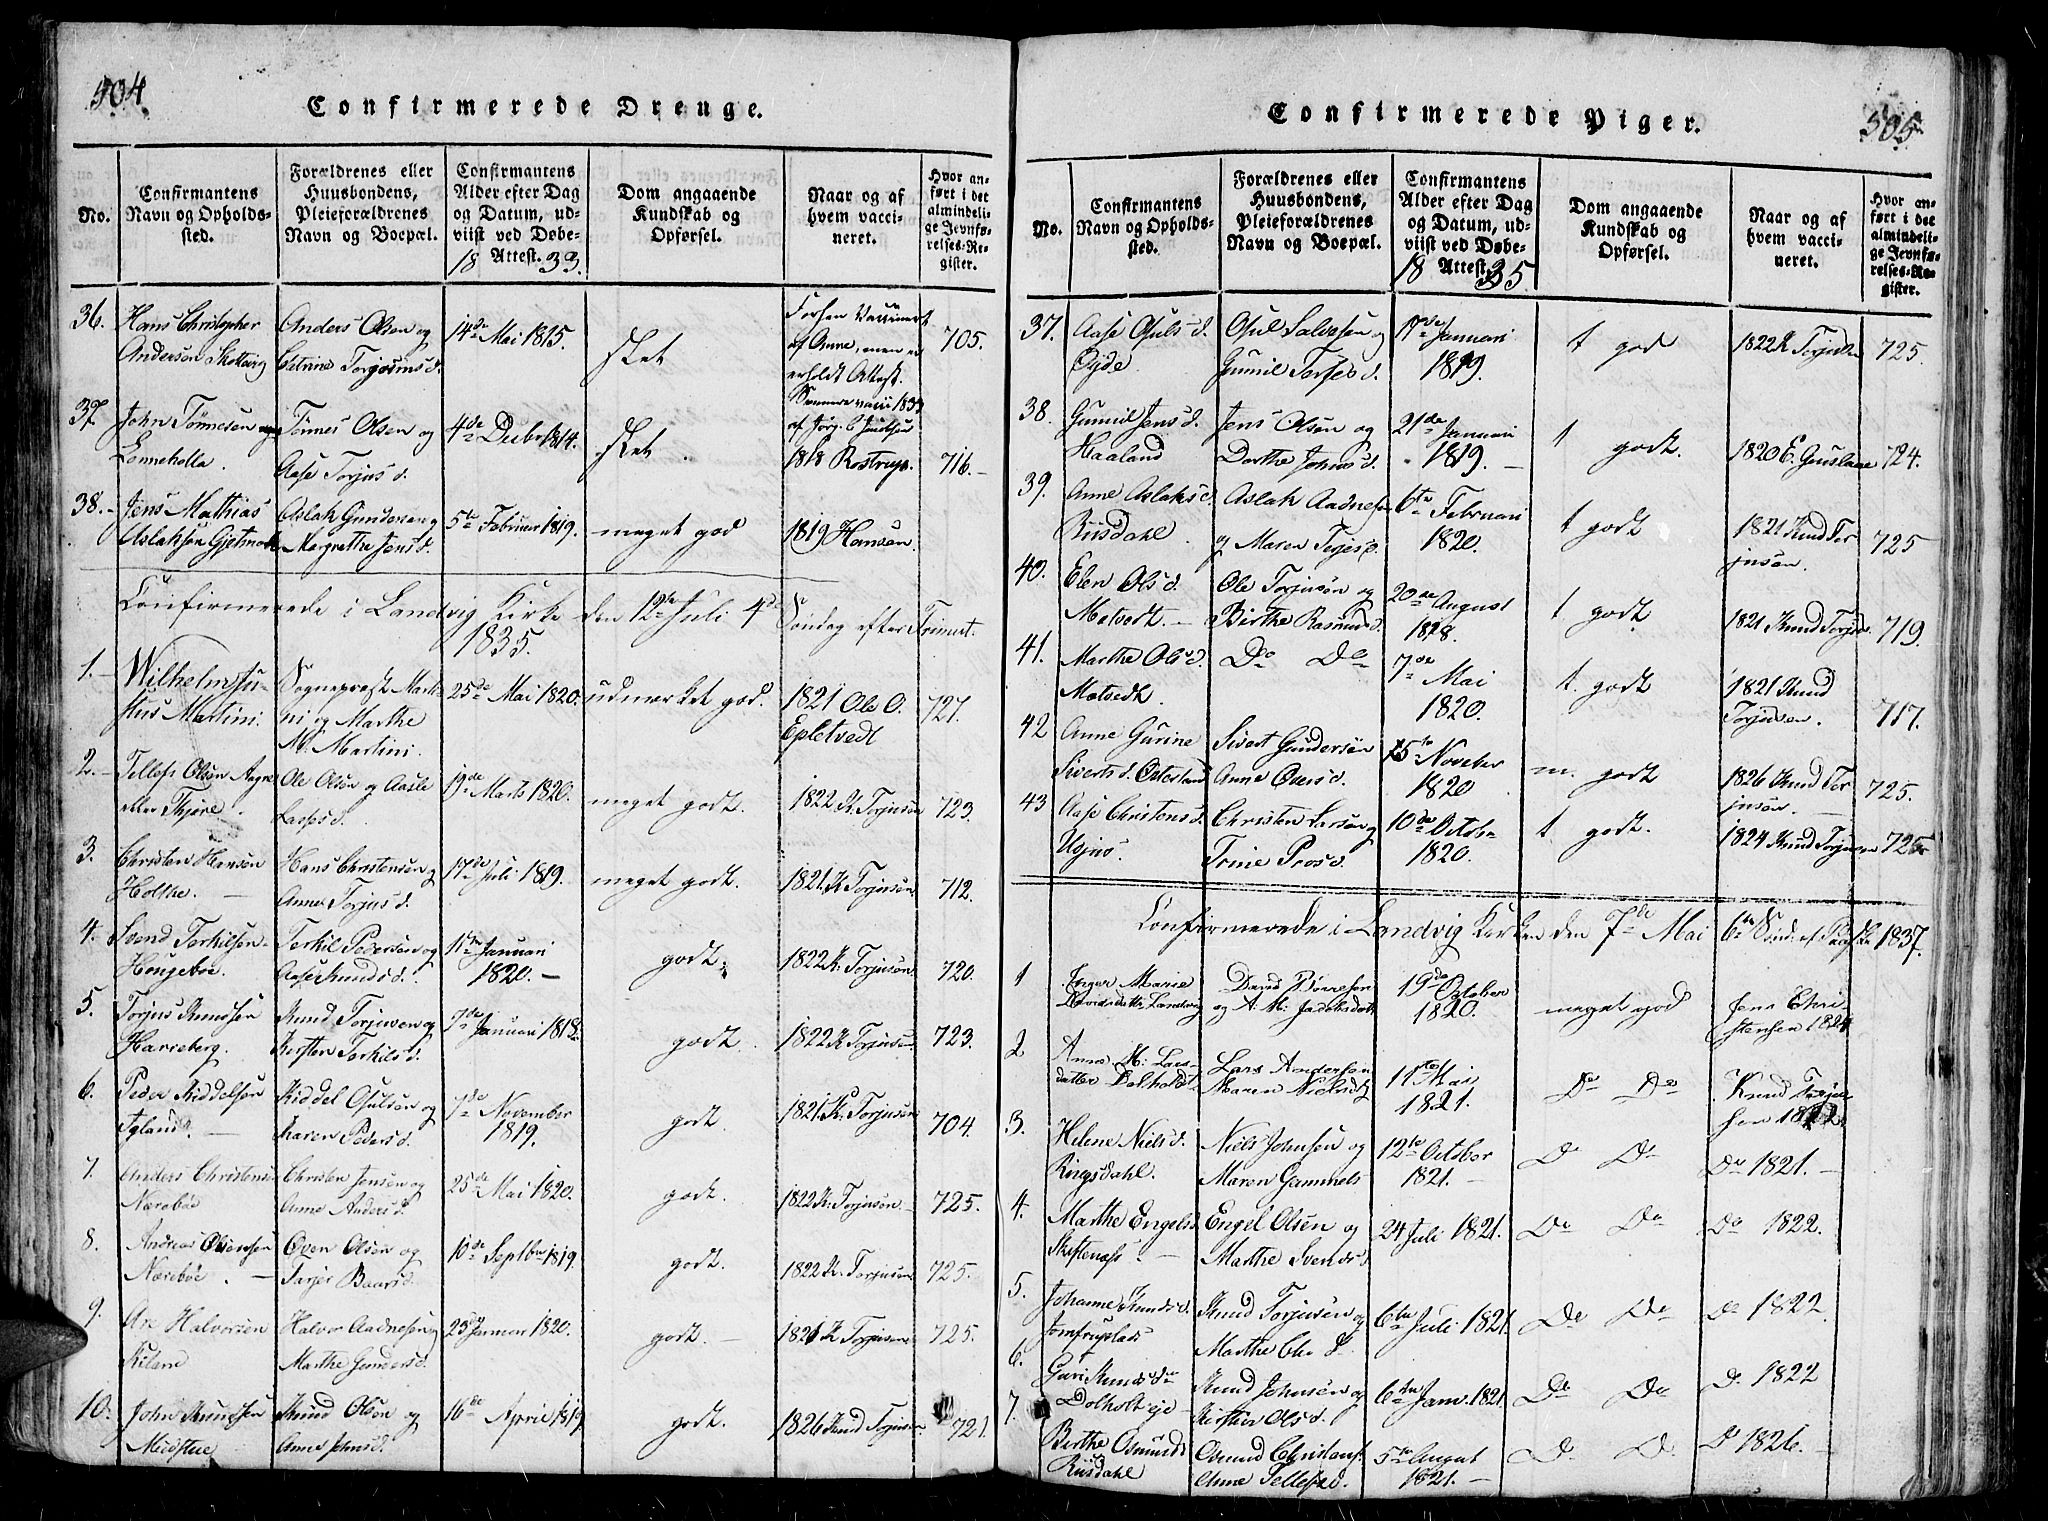 504.
Confirmerede Drenge.
No.
Confirmantens
Navn og Opholds-
sted.
Forældrenes eller
Huusbondens,
Pleieforældrenes
Navn og Boepæl.
Confirmantens
Alder efter Dag
og Datum, ud-
viist ved Døbe-
Attest.
18 33.
Dom angaaende
Kundskab og
Opførsel.
Naar og af
hvem vacci-
neret.
Hvor an-
ført i det
almindeli-
ge Jevnfø-
relses-Re-
gister.
36.
Hans Christopher
Anderson
Anders Olsen og
Catrine Torgersms d.
14de Mai 1815.
slet
Forhen Vaccineret
af Anne, men ei
erholdt Attest.
705.
37
John Tønnesen
Lonnekolla.
Tønnes Olsen og
Aase Torjus d.
4de Decbr 1814.
slet.
1818 Rostrup.
716.-
38.-
Jens Mathias
Aslaksøn
Aslak Gundersen og
Margrethe Jens d.
5te Februar 1819.
meget god
1819 Hansen.
Confirmerede i Landvig Kirke den 12te Juli 4de Søndag efter Trinit.
1835.
1.-
Wilhelm Ju-
stus Martini.
Sogneprest Marti-
ni og Marthe
M. Martini.
25de Mai 1820.
udmerket god.
1821 Ole O.
Epletvedt
727.
2.-
Tellef Olsøn Aagre
eller Kjøre.
Ole Olsøn og Aasle
19de Marts 1820.
meget godt.
1822 K. Torjusøn
723.
3.
Christen Hansøn
Holtke. -
Hans Christensen og
Anne Torjus d.
17de Juli 1819.
meget godt.
1821. K Torjusøn
712.
4.
Svend Terkilsen
Hougeboe.
Terkil Pedersen og
Aase Knuds d.
11te Januari
1820. -
godt.
1822 K. Torjusøn
720.
5.
Torjus Knudsøn
Harreberg.
Knud Torjusen og
Kirsten Terkils d.
7de Januari 1818.
godt.
1822 K Torjusen.
723.
6.
Peder Kiddelsøn
Igland. -
Kiddel Osulsøn og
Maren Peders d.
7de November
1819.
godt
1821. K. Torjusøn
704.
7.
Anders Christens
Nærebøe
Christen Jensen og
Anne Anders d.
25de Mai 1820.
godt.
1822 K. Torjusøn
725.
8.
Andreas
Nærebøe. -
Oven Olsen og
Tarjer Baars d.
10de Septbr 1819.
godt.
1822 K. Torjusen
725.
9.
Are Halvorsen
Kiland
Halvor Aadnesen og
Marthe Gunders d.
25de Januar 1820.
godt. -
1821 K Torjusen
725.
10.
John Knudsen
Knud Olsøn og
Anne Johns d.
16de April 1819
godt.
1826 Knud Torjusen
721.
505.
Confirmerede Piger.
No.
Confirmantens
Navn og Opholds-
sted.
Forældrenes eller
Huusbondens,
Pleieforældrenes
Navn og Boepæl.
Confirmantens
Alder efter Dag
og Datum, ud-
viist ved Døbe-
Attest.
18 35.
Dom angaaende
Kundskab og
Opførsel.
Naar og af
hvem vacci-
neret.
Hvor an-
ført i det
almindeli-
ge Jevnfø-
relses-Re-
gister.
37.
Aase Osuls d.
Øyde
Osul Salvesen og
Gumil Terjes d.
17de Januari
1819.
t god
1822 K Torjusen
725.
38.
Gumil Jens d.
Haaland
Jens Olsøn og
Dorthe Johns d.
21de Januari
1819. -
t godt.
1820 E.
724.
39.
Anne Aslaks d.
Riisdahl
Aslak Aadnesen
og Maren Terjes d.
6te Februari
1820.
t godt
1821 Knud Tor
jusøn.
725
40.
Elen Ols d.
Molvedt. -
Ole Torjusøn og
Birthe Rasmus d.
20de August
1818.
t godt
1821 Knud Torjus.
719.
41.
Marthe Ols d.
Molvedt.
Do Do
7de Mai
1820.
t. godt
1821 Knud
Torjusen.
717.
42
Anne Gurine
Siverts d. Østerland
Sivert Gundersøn
Anne Overs d.
15te Novebr
1820
m. godt
1826 Knud Tor
jusøn.
725.
43
Aase Christens d.
Christen Larsøn og
Trine Pros d.
10de Octobr
1820.
t godt.
1824 Knud Torjusen
725
Confirmerede i Landvig Kirke den 7de Mai 6te Sønd. ef. Paaske 1837.
1
Inger Marie
Landvig
David Børresen
og A. M. Jacobsdatt
19de October
1820.
meget god
Jens Chri
stensen 1824
2
Anne M. Lars-
datter Dolholdt
Lars Andersen
Maren Nielsdt
11te Mai
1821.
Do Do
Knud Torju
sen 1822.
3.
Helene Niels d.
Ringsdahl.
Niels Johnsøn og
Maren Gammels
12te October
1821. -
Do Do
Do 1821. -
4.
Marthe Engels d
Skiftenæss. -
Engel Olsen og
Marthe Svends d
24 Juli 1821.
Do Do
Do 1822.
5.
Johanne Knuds d.
Jomfruplads
Knud Torjusøn og
Marthe
6te Juli 1821.
Do Do
Do 1822
6.
Guri Knuds d
Dolholt eje
Knud Johnsøn og
Kirsten Ols d.
6te Janr. 1821
Do Do
D. 1822
7.
Birthe Osmunds
Riisdahl
Osmund Christens
Anne Tellefs d.
5te August
1821. -
D D.
Do 1826.